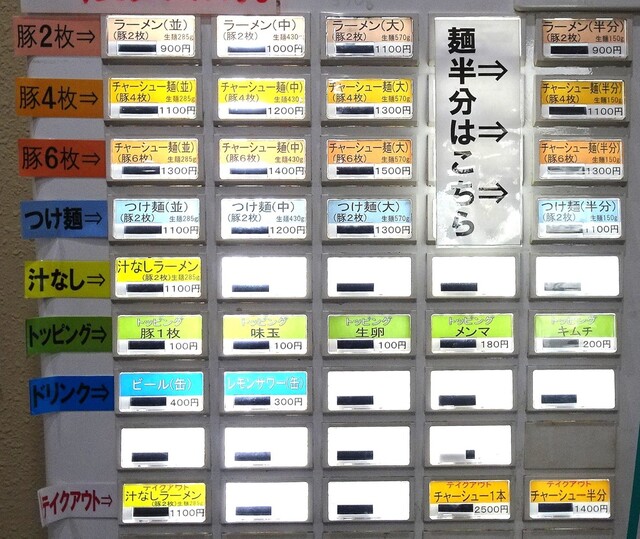 豚2枚⇒
ラーメン(並)
(豚2枚) 生麺285g
900円
ラーメン(中)
(豚2枚) 生麺430g
1000円
ラーメン(大)
(豚2枚) 生麺570g
1100円
麺半分はこちら
⇒
⇒
⇒
ラーメン(半分)
(豚2枚) 生麺150g
900円
豚4枚⇒
チャーシュー麺(並)
(豚4枚) 生麺285g
1100円
チャーシュー麺(中)
(豚4枚) 生麺430g
1200円
チャーシュー麺(大)
(豚4枚) 生麺570g
1300円
チャーシュー麺(半分)
(豚4枚) 生麺150g
1100円
豚6枚⇒
チャーシュー麺(並)
(豚6枚) 生麺285g
1300円
チャーシュー麺(中)
(豚6枚) 生麺430g
1400円
チャーシュー麺(大)
(豚6枚) 生麺570g
1500円
チャーシュー麺(半分)
(豚6枚) 生麺150g
1300円
つけ麺⇒
つけ麺(並)
(豚2枚) 生麺285g
1100円
つけ麺(中)
(豚2枚) 生麺430g
1200円
つけ麺(大)
(豚2枚) 生麺570g
1300円
つけ麺(半分)
(豚2枚) 生麺150g
1100円
汁なし⇒
汁なしラーメン
(豚2枚) 生麺285g
1100円
トッピング⇒
トッピング
豚1枚
100円
トッピング
味玉
100円
トッピング
生卵
100円
トッピング
メンマ
180円
トッピング
キムチ
200円
ドリンク⇒
ビール(缶)
400円
レモンサワー(缶)
300円
テイクアウト⇒
テイクアウト
汁なしラーメン
(豚2枚) 生麺285g
1100円
テイクアウト
チャーシュー1本
2500円
テイクアウト
チャーシュー半分
1400円